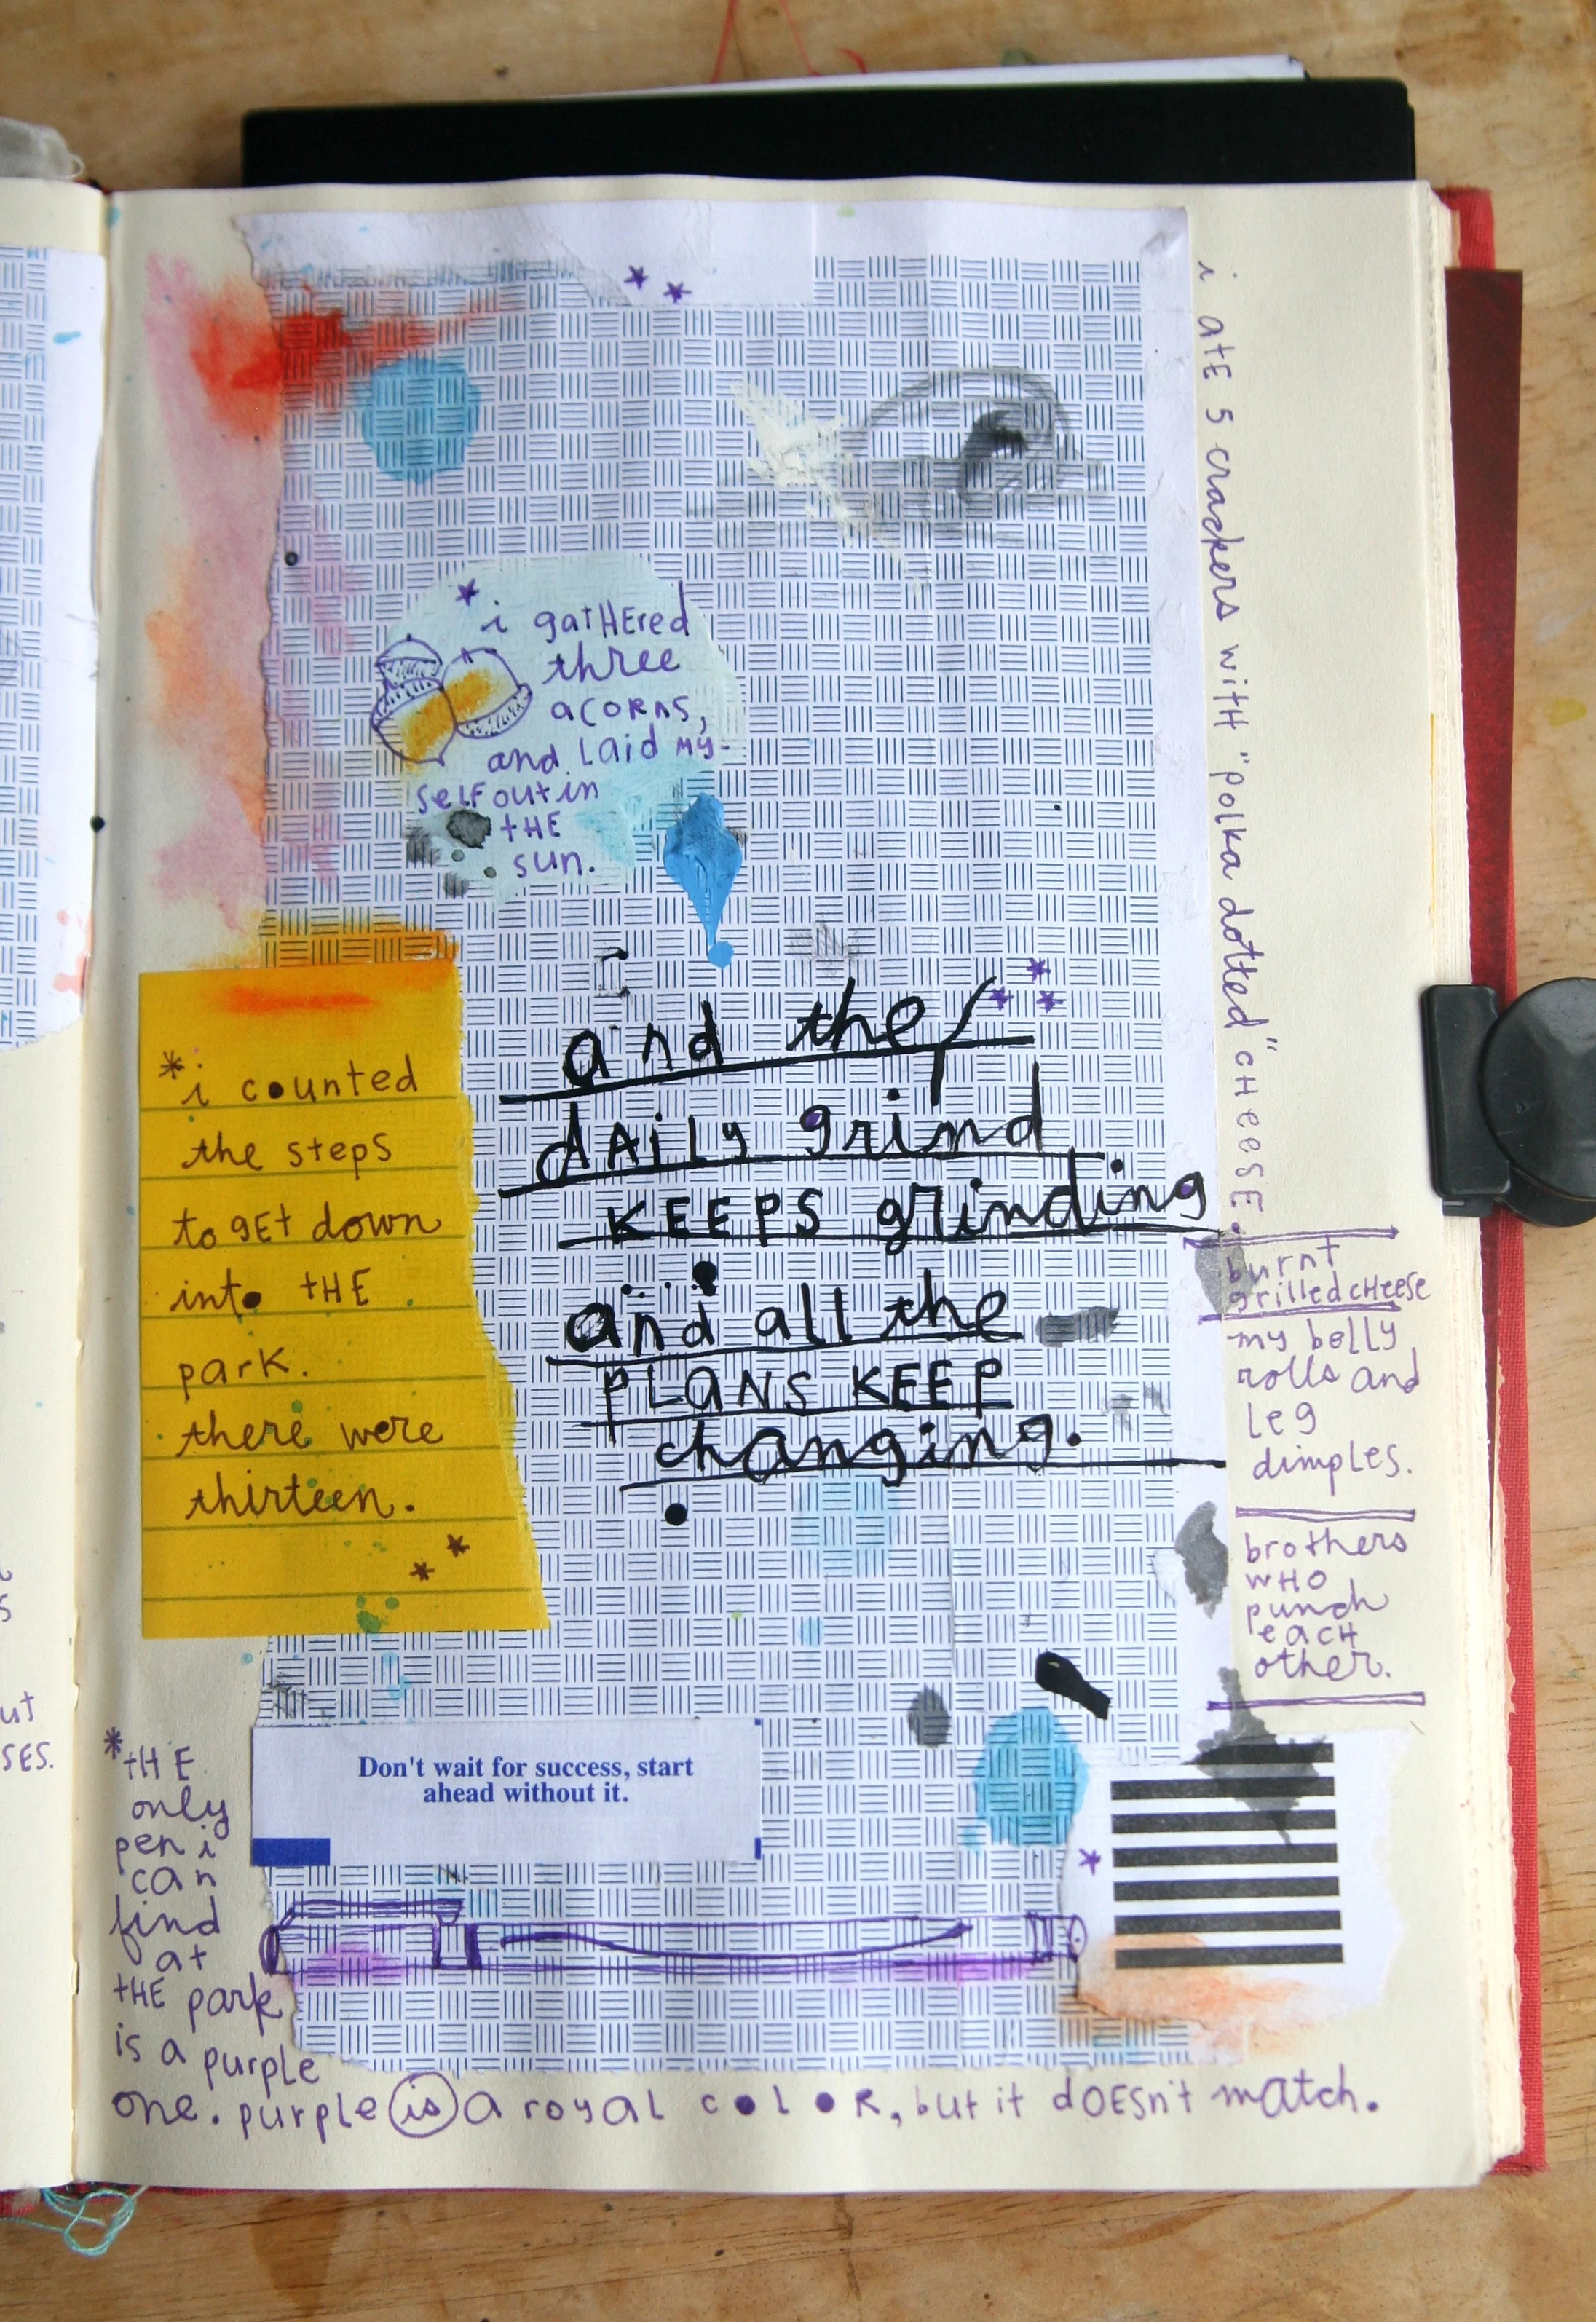 i gatHEred
three
acorns,
and laid my-
self out in
tHE
sun.
*i counted
the steps
to gEt down
into tHE
park.
there were
thirteen.
and the
dAiLy grind
KEEPS grinding
and all the
PLANS KEEP
changing.
i AtE 5 crackers witH "polka dotted" cHeesE.
burnt
grilled cHeese
my belly
rolls and
leg
dimples.
brothers
wHO
punch
eacH
other.
Don't wait for success, start
ahead without it.
*tHE
only
pen i
can
find
at
tHE park
is a purple
one. purple is a royal coloR, but it dOESn't match.
ut
SES.